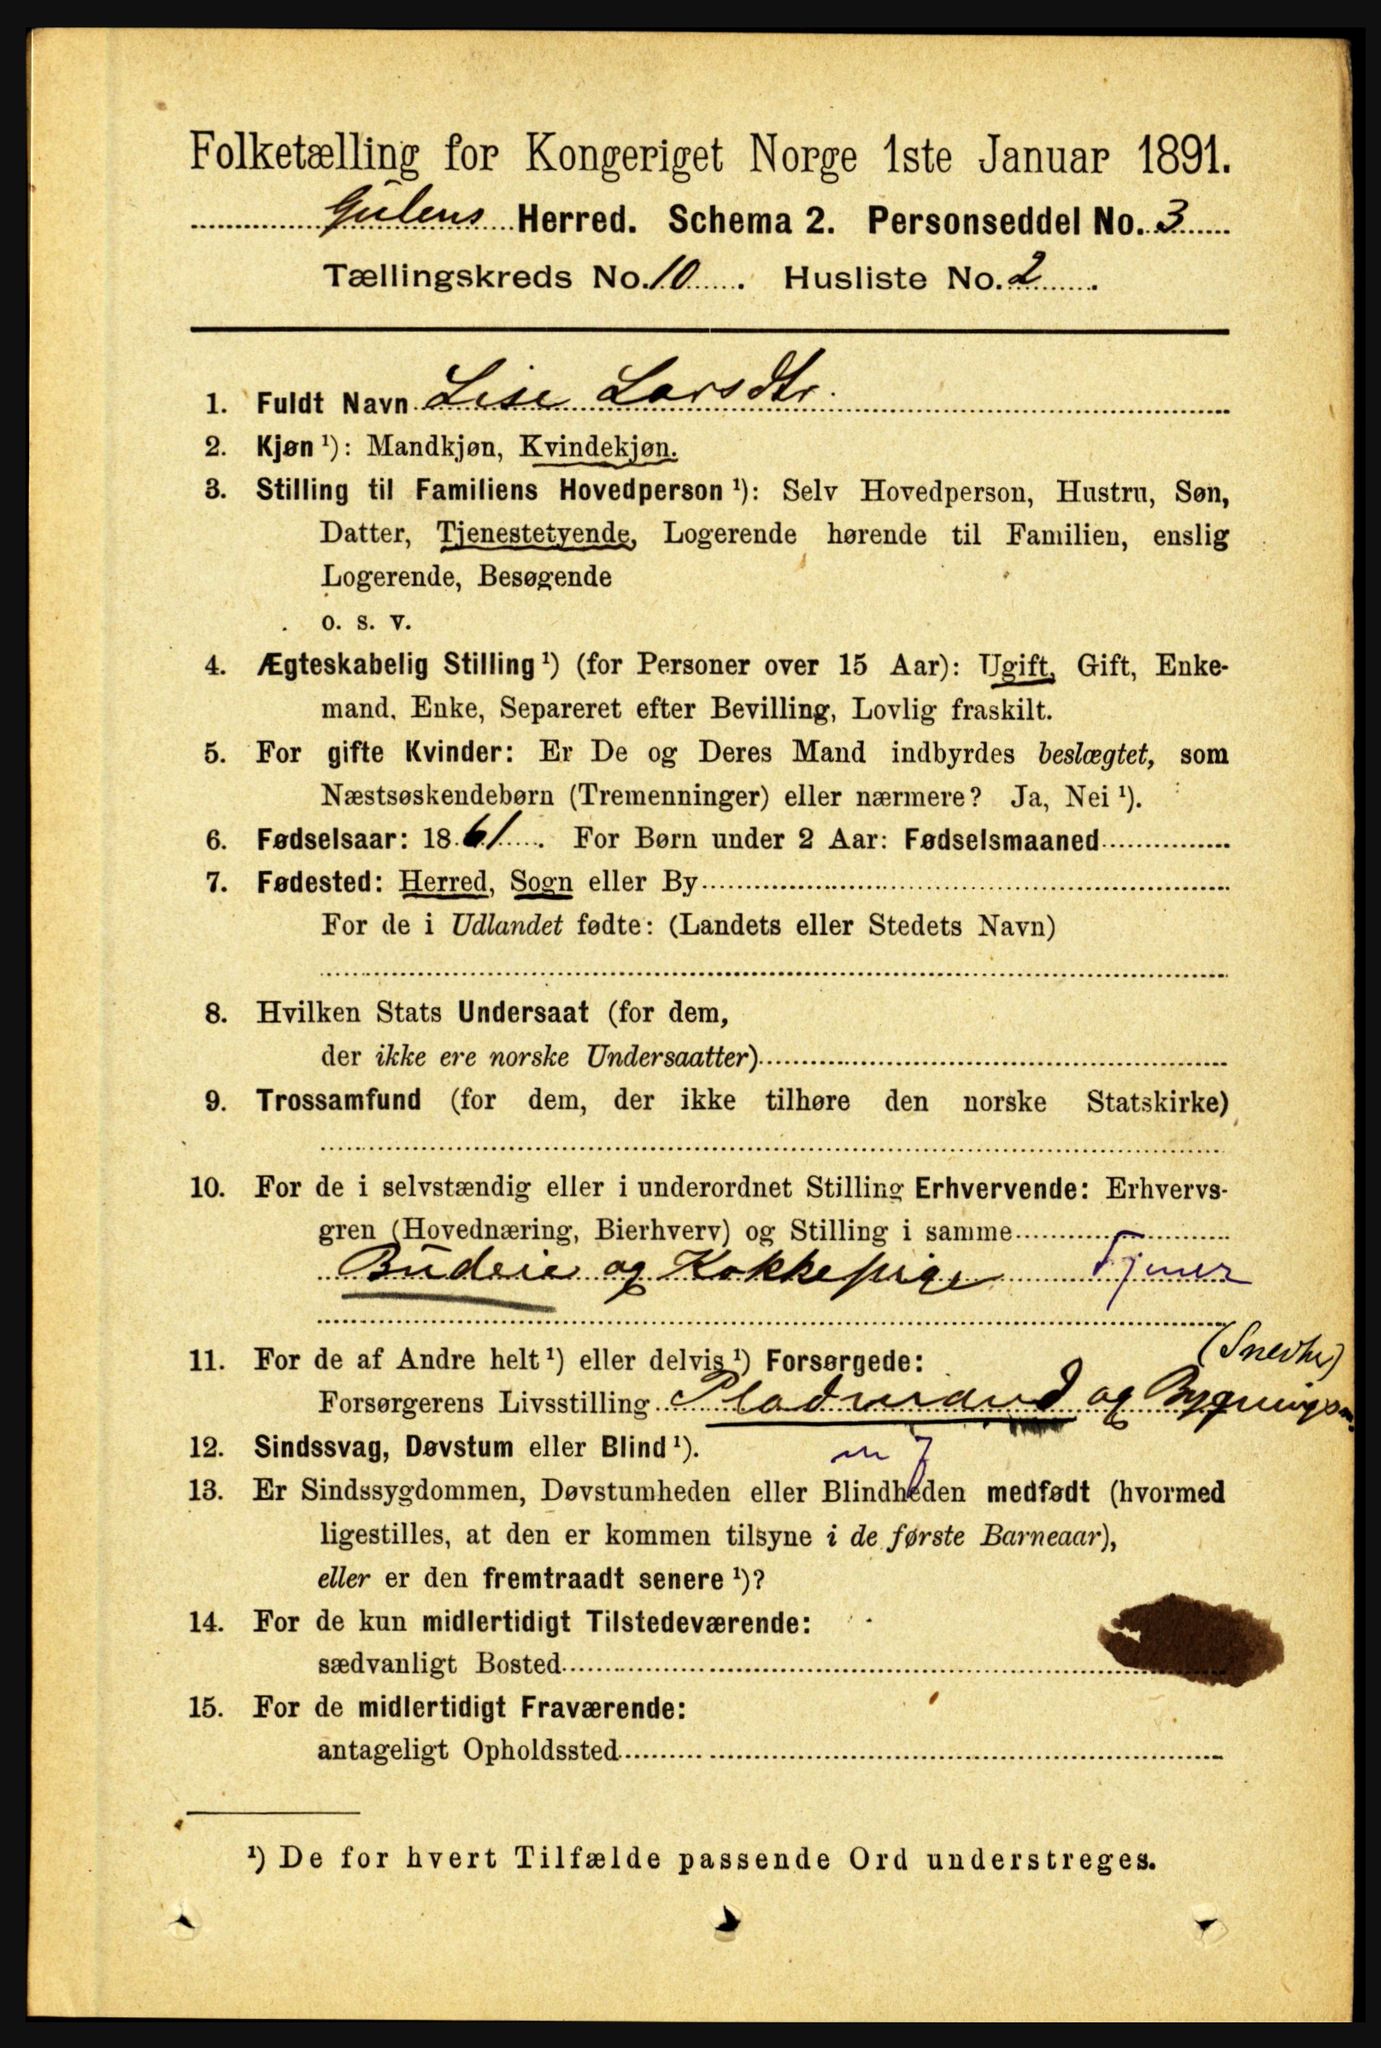 Folketælling for Kongeriget Norge 1ste Januar 1891.
Gulens Herred. Schema 2. Personseddel No. 3
Tællingskreds No. 10. Husliste No. 2.
1. Fuldt Navn Lise Larsdtr.
2. Kjøn ¹): Mandkjøn, Kvindekjøn.
3. Stilling til Familiens Hovedperson ¹): Selv Hovedperson, Hustru, Søn,
Datter, Tjenestetyende, Logerende hørende til Familien, enslig
Logerende, Besøgende
o. s. v.
4. Ægteskabelig Stilling ¹) (for Personer over 15 Aar): Ugift, Gift, Enke-
mand, Enke, Separeret efter Bevilling, Lovlig fraskilt.
5. For gifte Kvinder: Er De og Deres Mand indbyrdes beslægtet, som
Næstsøskendebørn (Tremenninger) eller nærmere? Ja, Nei ¹).
6. Fødselsaar: 1861. For Børn under 2 Aar: Fødselsmaaned
7. Fødested: Herred, Sogn eller By
For de i Udlandet fødte: (Landets eller Stedets Navn)
8. Hvilken Stats Undersaat (for dem,
der ikke ere norske Undersaatter)
9. Trossamfund (for dem, der ikke tilhøre den norske Statskirke)
10. For de i selvstændig eller i underordnet Stilling Erhvervende: Erhvervs-
gren (Hovednæring, Bierhverv) og Stilling i samme
Budeie og Kokkepige Tjener
(Snedker)
11. For de af Andre helt ¹) eller delvis ¹) Forsørgede:
Forsørgerens Livsstilling Pladsmand og Bygningsm.
12. Sindssvag, Døvstum eller Blind ¹).
13. Er Sindssygdommen, Døvstumheden eller Blindheden medfødt (hvormed
ligestilles, at den er kommen tilsyne i de første Barneaar),
eller er den fremtraadt senere ¹)?
14. For de kun midlertidigt Tilstedeværende:
sædvanligt Bosted
15. For de midlertidigt Fraværende:
antageligt Opholdssted
¹) De for hvert Tilfælde passende Ord understreges.